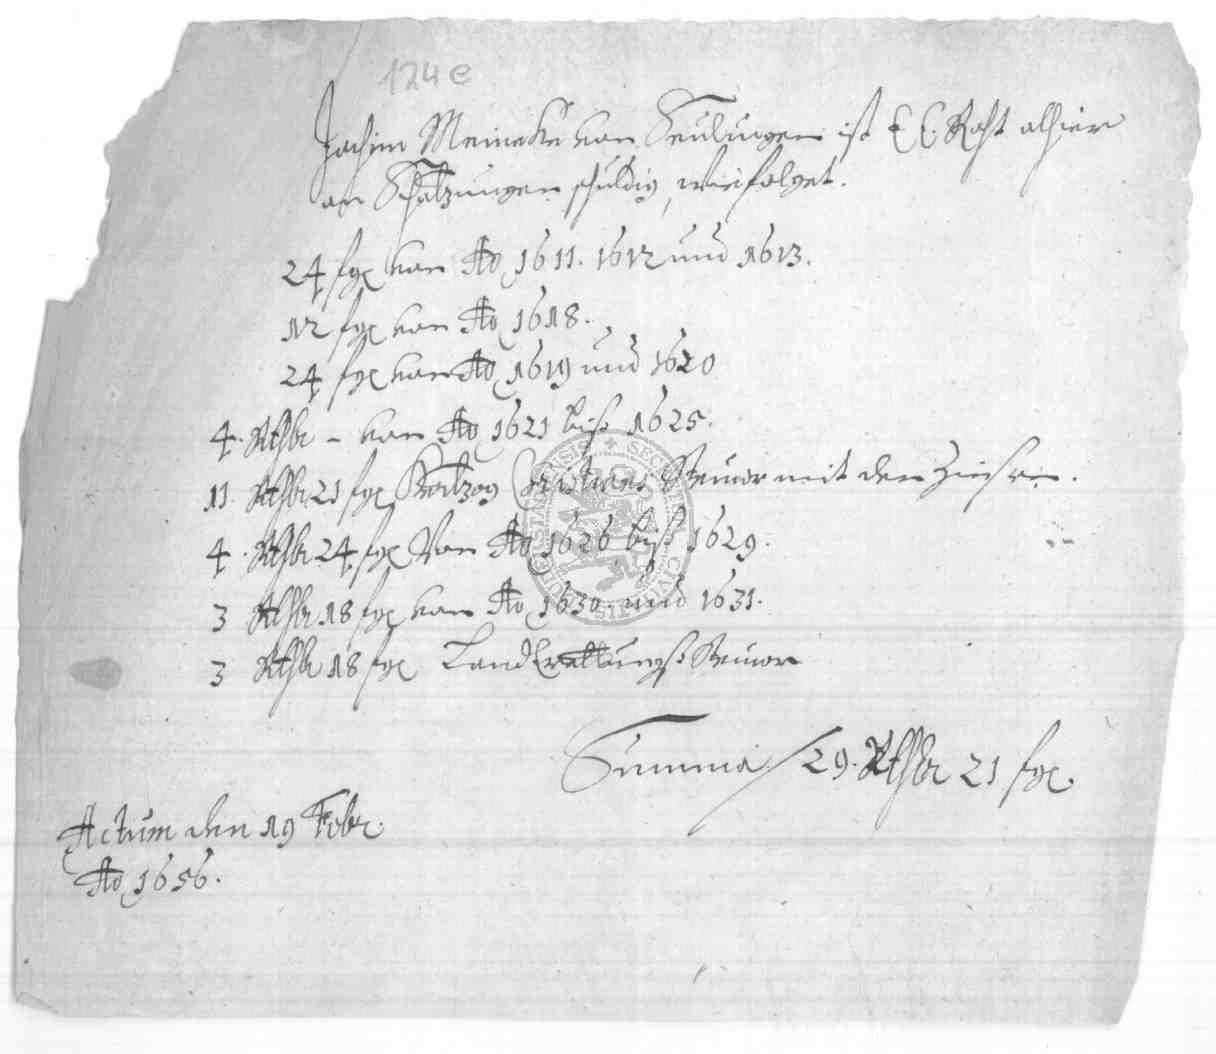 124e
Jochim Meineke von Seulingen ist E E. Raht alhier
an Schatzungen schuldig, wie folget.
24 fgl von Ao 1611. 1612 und 1613.
12 fgl von Ao 1618.
24 fgl von Ao 1619 und 1620
4. Rthlr - von Ao 1621 biß 1625.
11. Rthlr 21 fgl Hertzog Christians Steuwr mit den Zinsen.
4. Rthlr 24 fgl Von Ao 1626 biß 1629.
3 Rthlr 18 fgl von Ao 1630. und 1631.
3 Rthlr 18 fgl LandErettungß Steuwr
Summa 29. Rthlr 21 fgl.
Actum den 19 Febr.
Ao 1656.